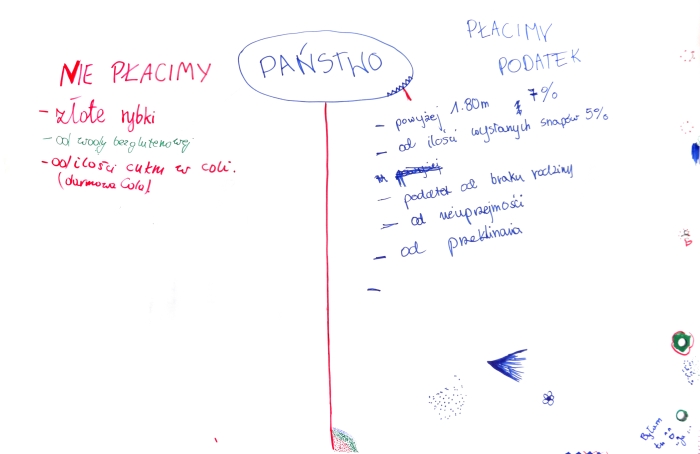 PAŃSTWO
NIE PŁACIMY
- złote rybki
- od wody bezglutenowej
- od ilości cukru w coli.
(darmowa Cola)
PŁACIMY
PODATEK
- powyżej 1.80m 7%
- od ilości wysłanych snapów 5%
- podatek od braku rodziny
- od nieuprzejmości
- od przeklinania
-
Byłam
tu